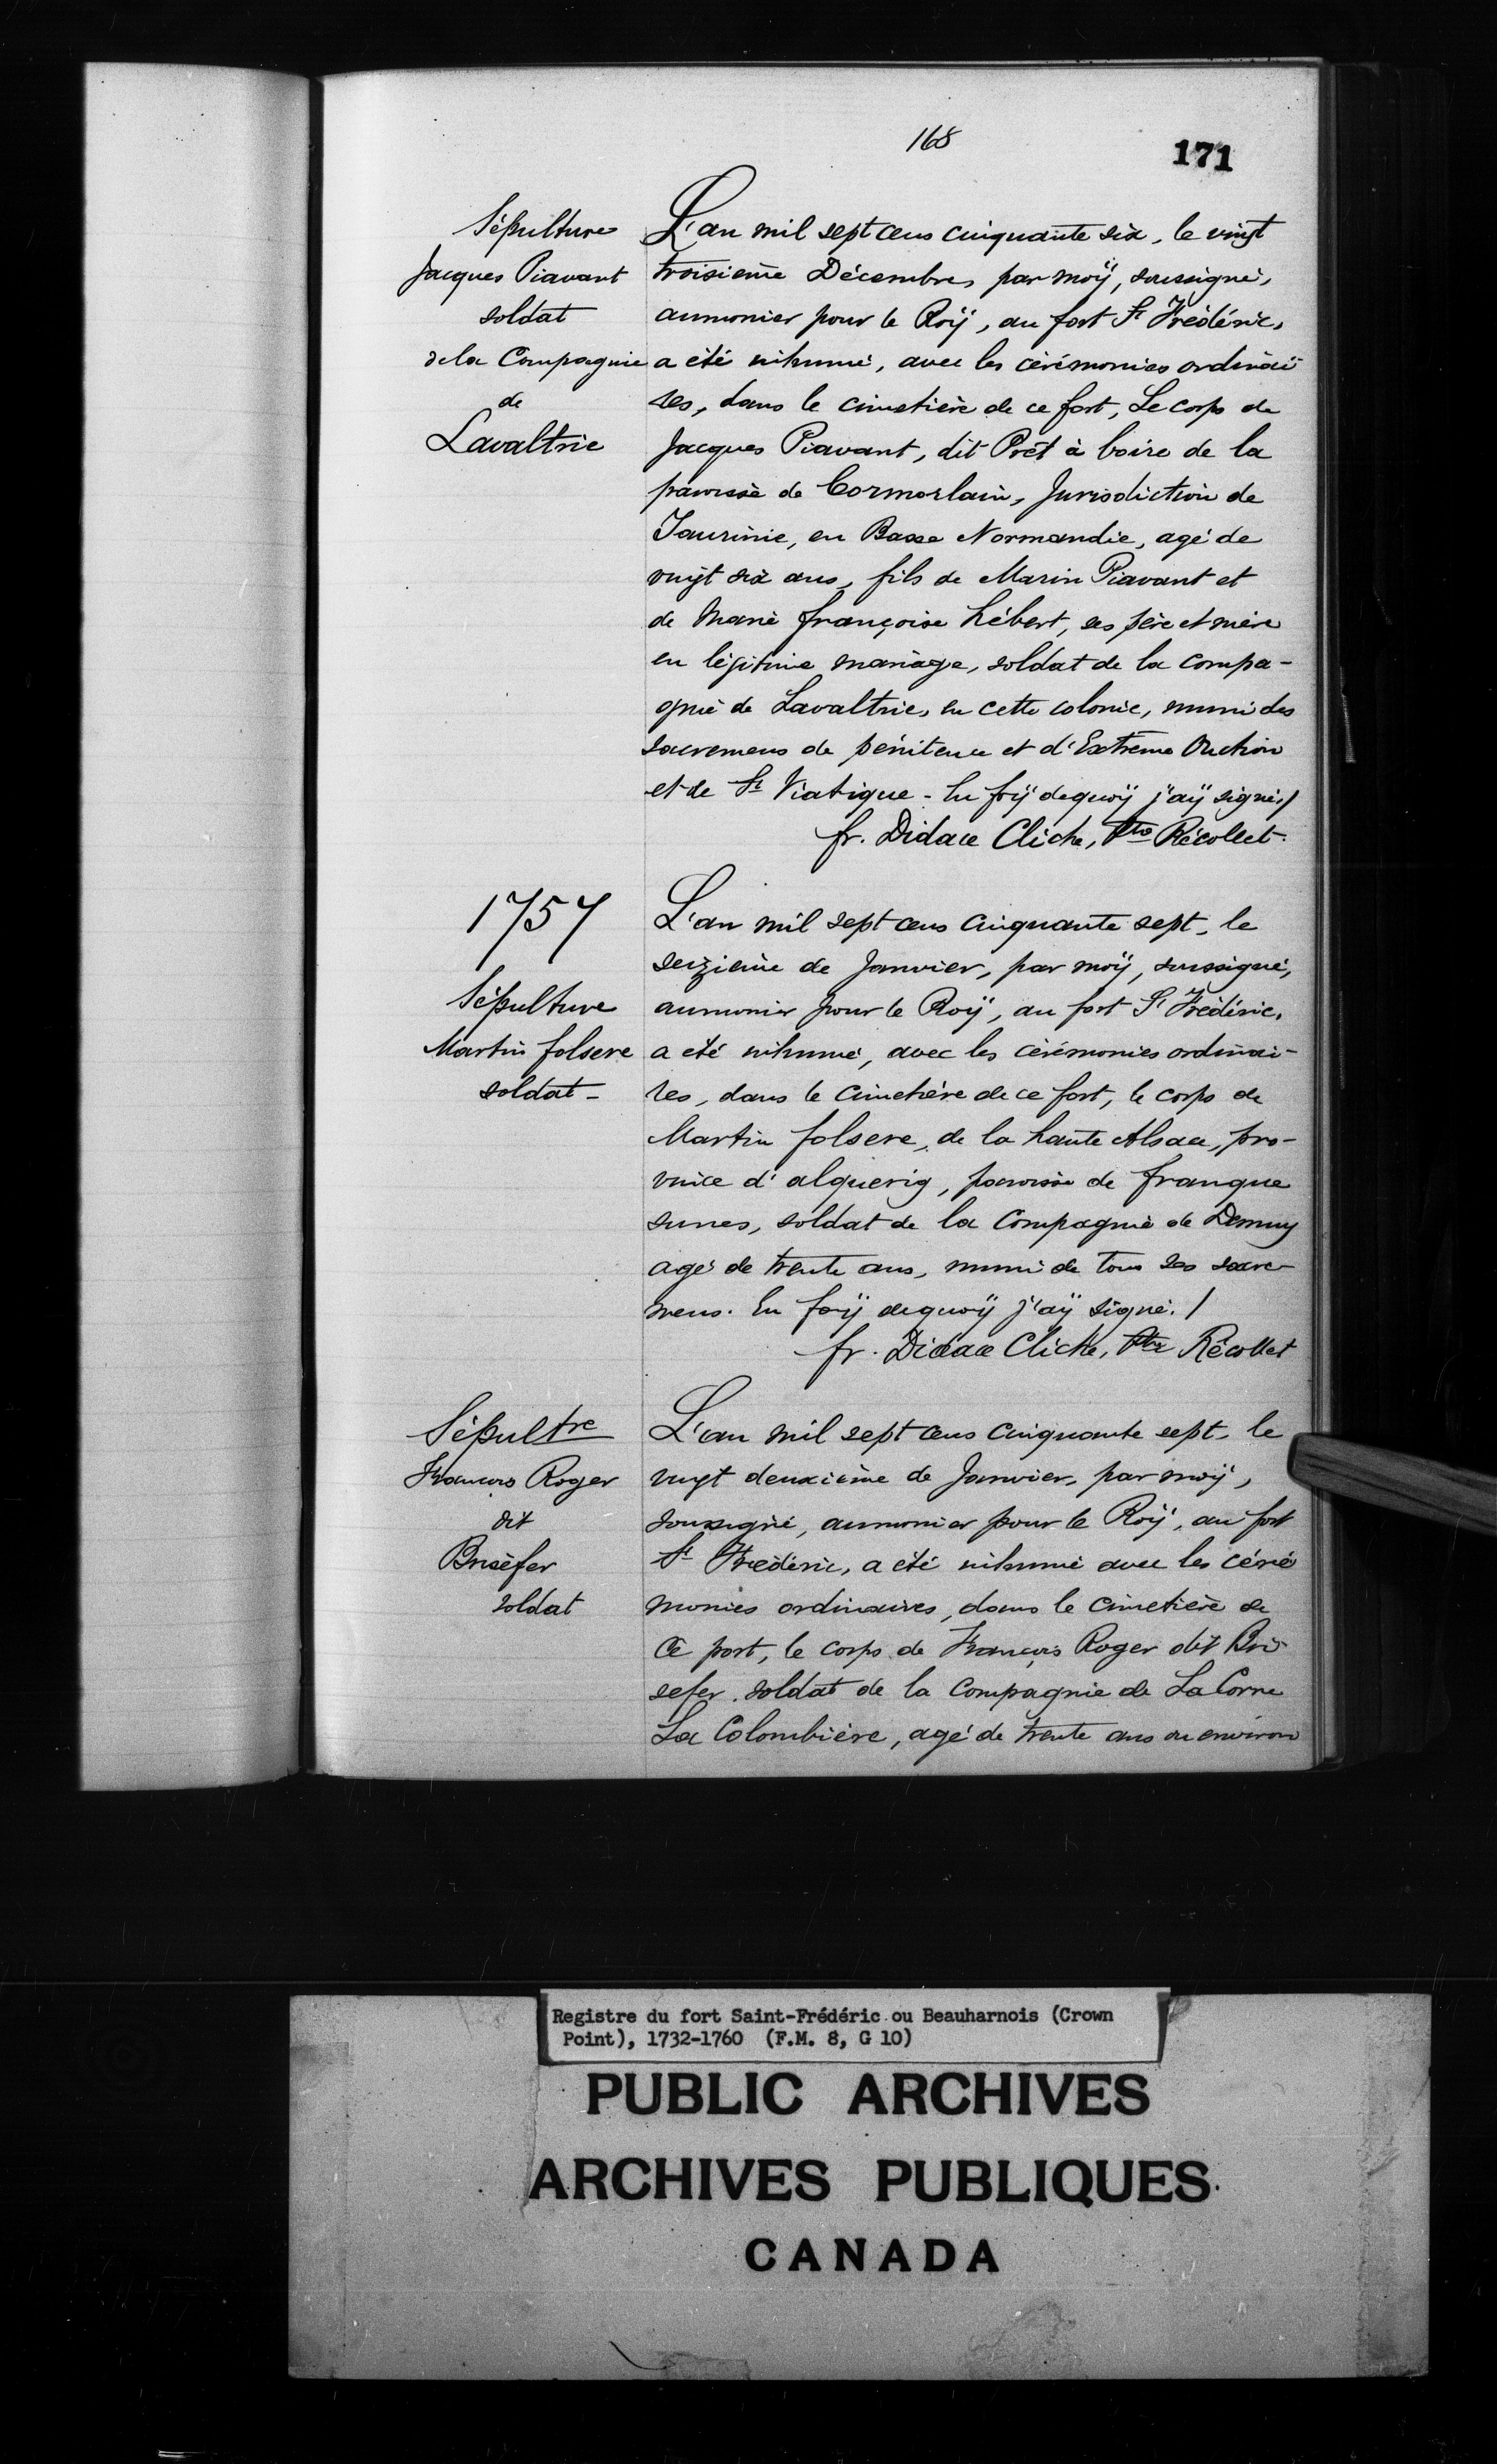 168
171
Sépulture
Jacques Piavant
soldat
de la Compagnie
de
Lavaltrie
L'an mil sept cens cinquante six, le vingt
troisième Décembre, par moÿ, soussigné,
aumonier pour le Roÿ, au fort St Frédéric,
a été inhumé, avec les cérémonies ordinai-
res, dans le cimetière de ce fort, Le corps de
Jacques Piavant, dit Prêt à boire de la
paroisse de Cormorlain, Jurisdiction de
Taurinie, en Basse Normandie, agé de
vingt six ans, fils de Marin Piavant et
de Marie françoise hébert, ses père et mère
en légitime mariage, soldat de la compa-
gnie de Lavaltrie, en cette colonie, muni des
sacremens de pénitence et d'Extreme Onction
et de St Viatique - En foÿ dequoÿ j'aÿ signé,/
fr. Didace Cliche, Ptre Récollet.
1757
Sépulture
Martin folsere
soldat -
L'an mil sept cens cinquante sept, le
seizième de Janvier, par moÿ, soussigné,
aumonier pour le Roÿ, au fort St Frédéric,
a été inhumé, avec les cérémonies ordinai-
res, dans le cimetière de ce fort, le corps de
Martin folsere, de la haute Alsace, pro-
vince d'alguerig, paroisse de frangue
sunes, soldat de la Compagnie de Demuy
agé de trente ans, muni de tous ses sacre-
mens. En foÿ dequoÿ j'aÿ signé. /
fr. Didace Cliche, Ptre Récollet
Sépultre
François Roger
dit
Brisefer
soldat
L'an mil sept cens cinquante sept, le
vingt deuxième de Janvier, par moÿ,
soussigné, aumonier pour le Roÿ, au fort
St Frédéric, a été inhumé avec les céré
monies ordinaires, dans le cimetière de
Ce fort, le corps de François Roger dit Bri-
sefer, soldat de la Compagnie de La Corne
La Colombière, agé de trente ans ou environ
Registre du fort Saint-Frédéric ou Beauharnois (Crown
Point), 1732-1760 (F.M. 8, G 10)
PUBLIC ARCHIVES
ARCHIVES PUBLIQUES
CANADA